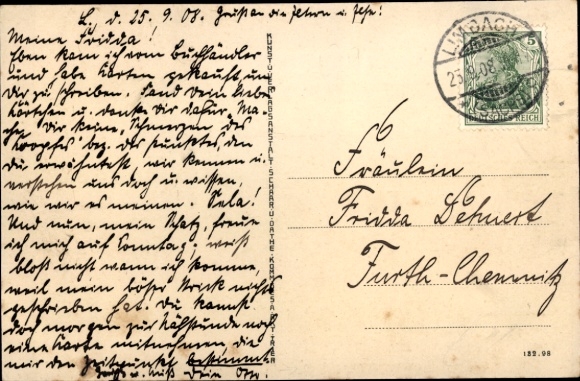 L., d. 25. 9. 08. Grüß an die Eltern u. Else!
Meine Fridda!
Eben kam ich vom Buchhändler
und habe Karten gekauft, um
Dir zu schreiben. Fand Dein liebes
Kärtchen u. danke Dir dafür. Ma-
che Dir keine Schmerzen des
Kopfes bez. des Punktes, den
Du erwähntest, wir kennen u.
verstehen uns doch u. wissen,
wie wir es meinen. Sela!
Und nun, mein Schatz, freue
ich mich auf Sonntag, weiß
bloß nicht wann ich komme,
weil mein böser Strick nichts
geschrieben hat. Du kannst
doch morgen zur Nähstunde noch
eine Karte mitnehmen, die
mir den Zeitpunkt bestimmt.
Gruß u. Kuß Dein Otto.
KUNST U. VERLAGSANSTALT SCHAAR U. DATHE KOMM. GES. A. AKT. TRIER
LIMBACH
25.9.08
(SACHSEN)
5
DEUTSCHES REICH
Fräulein
Fridda Dehnert
Furth-Chemnitz
132.98